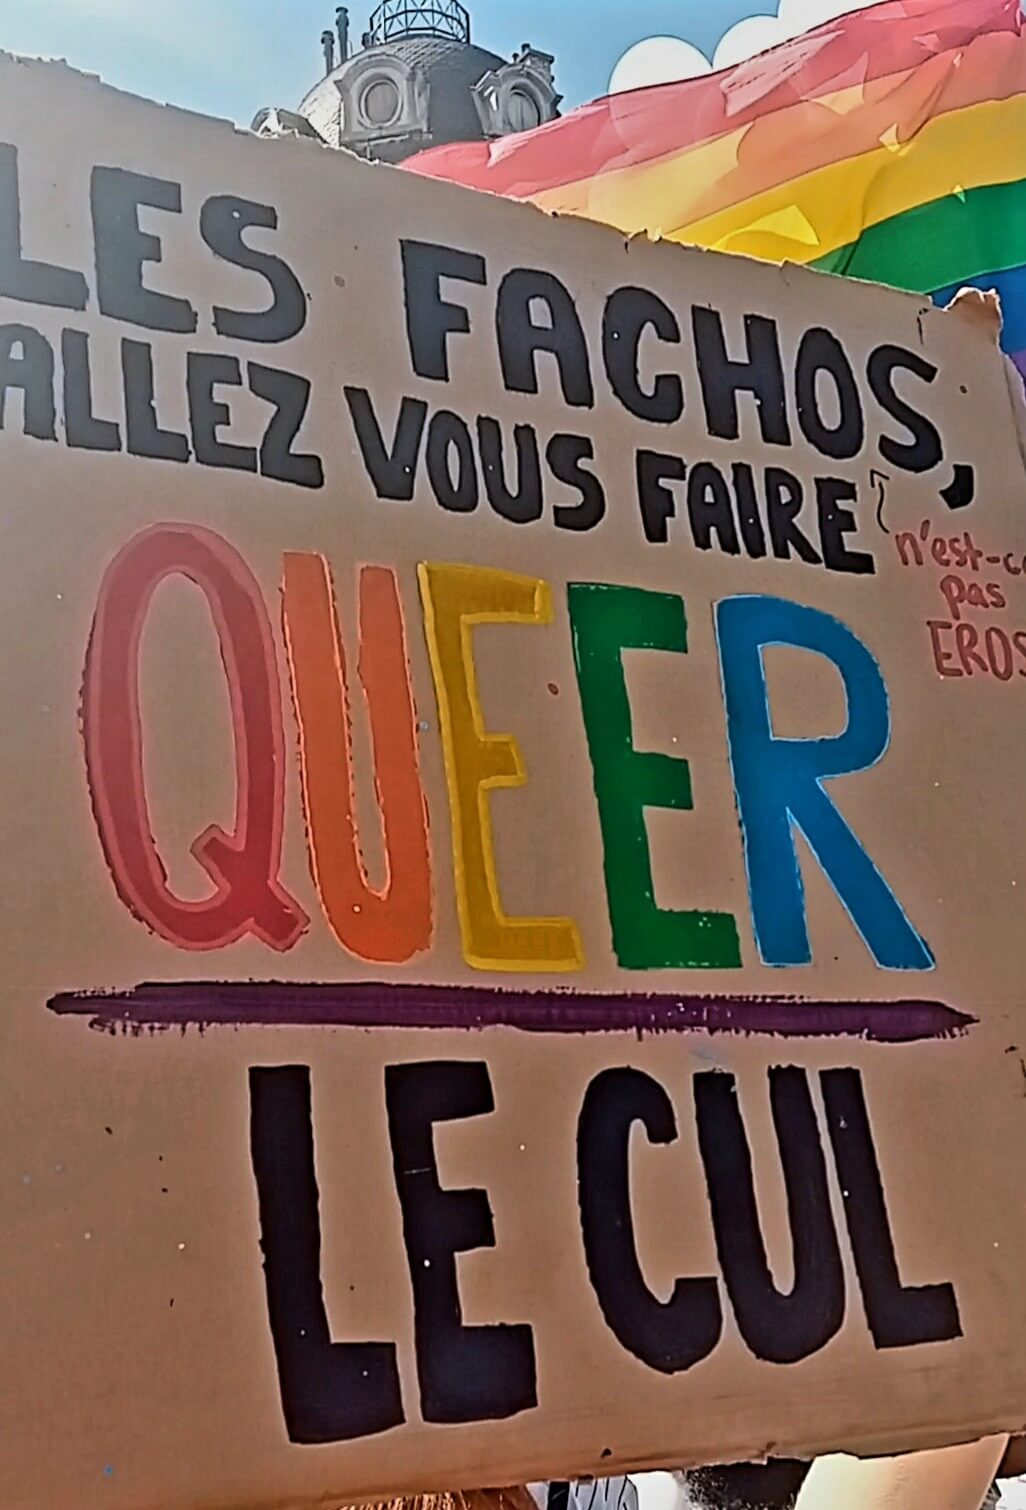 LES FACHOS,
ALLEZ VOUS FAIRE
n'est-ce
pas
EROS
QUEER
LE CUL